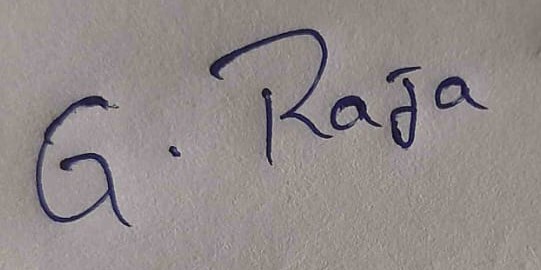 G. Raja